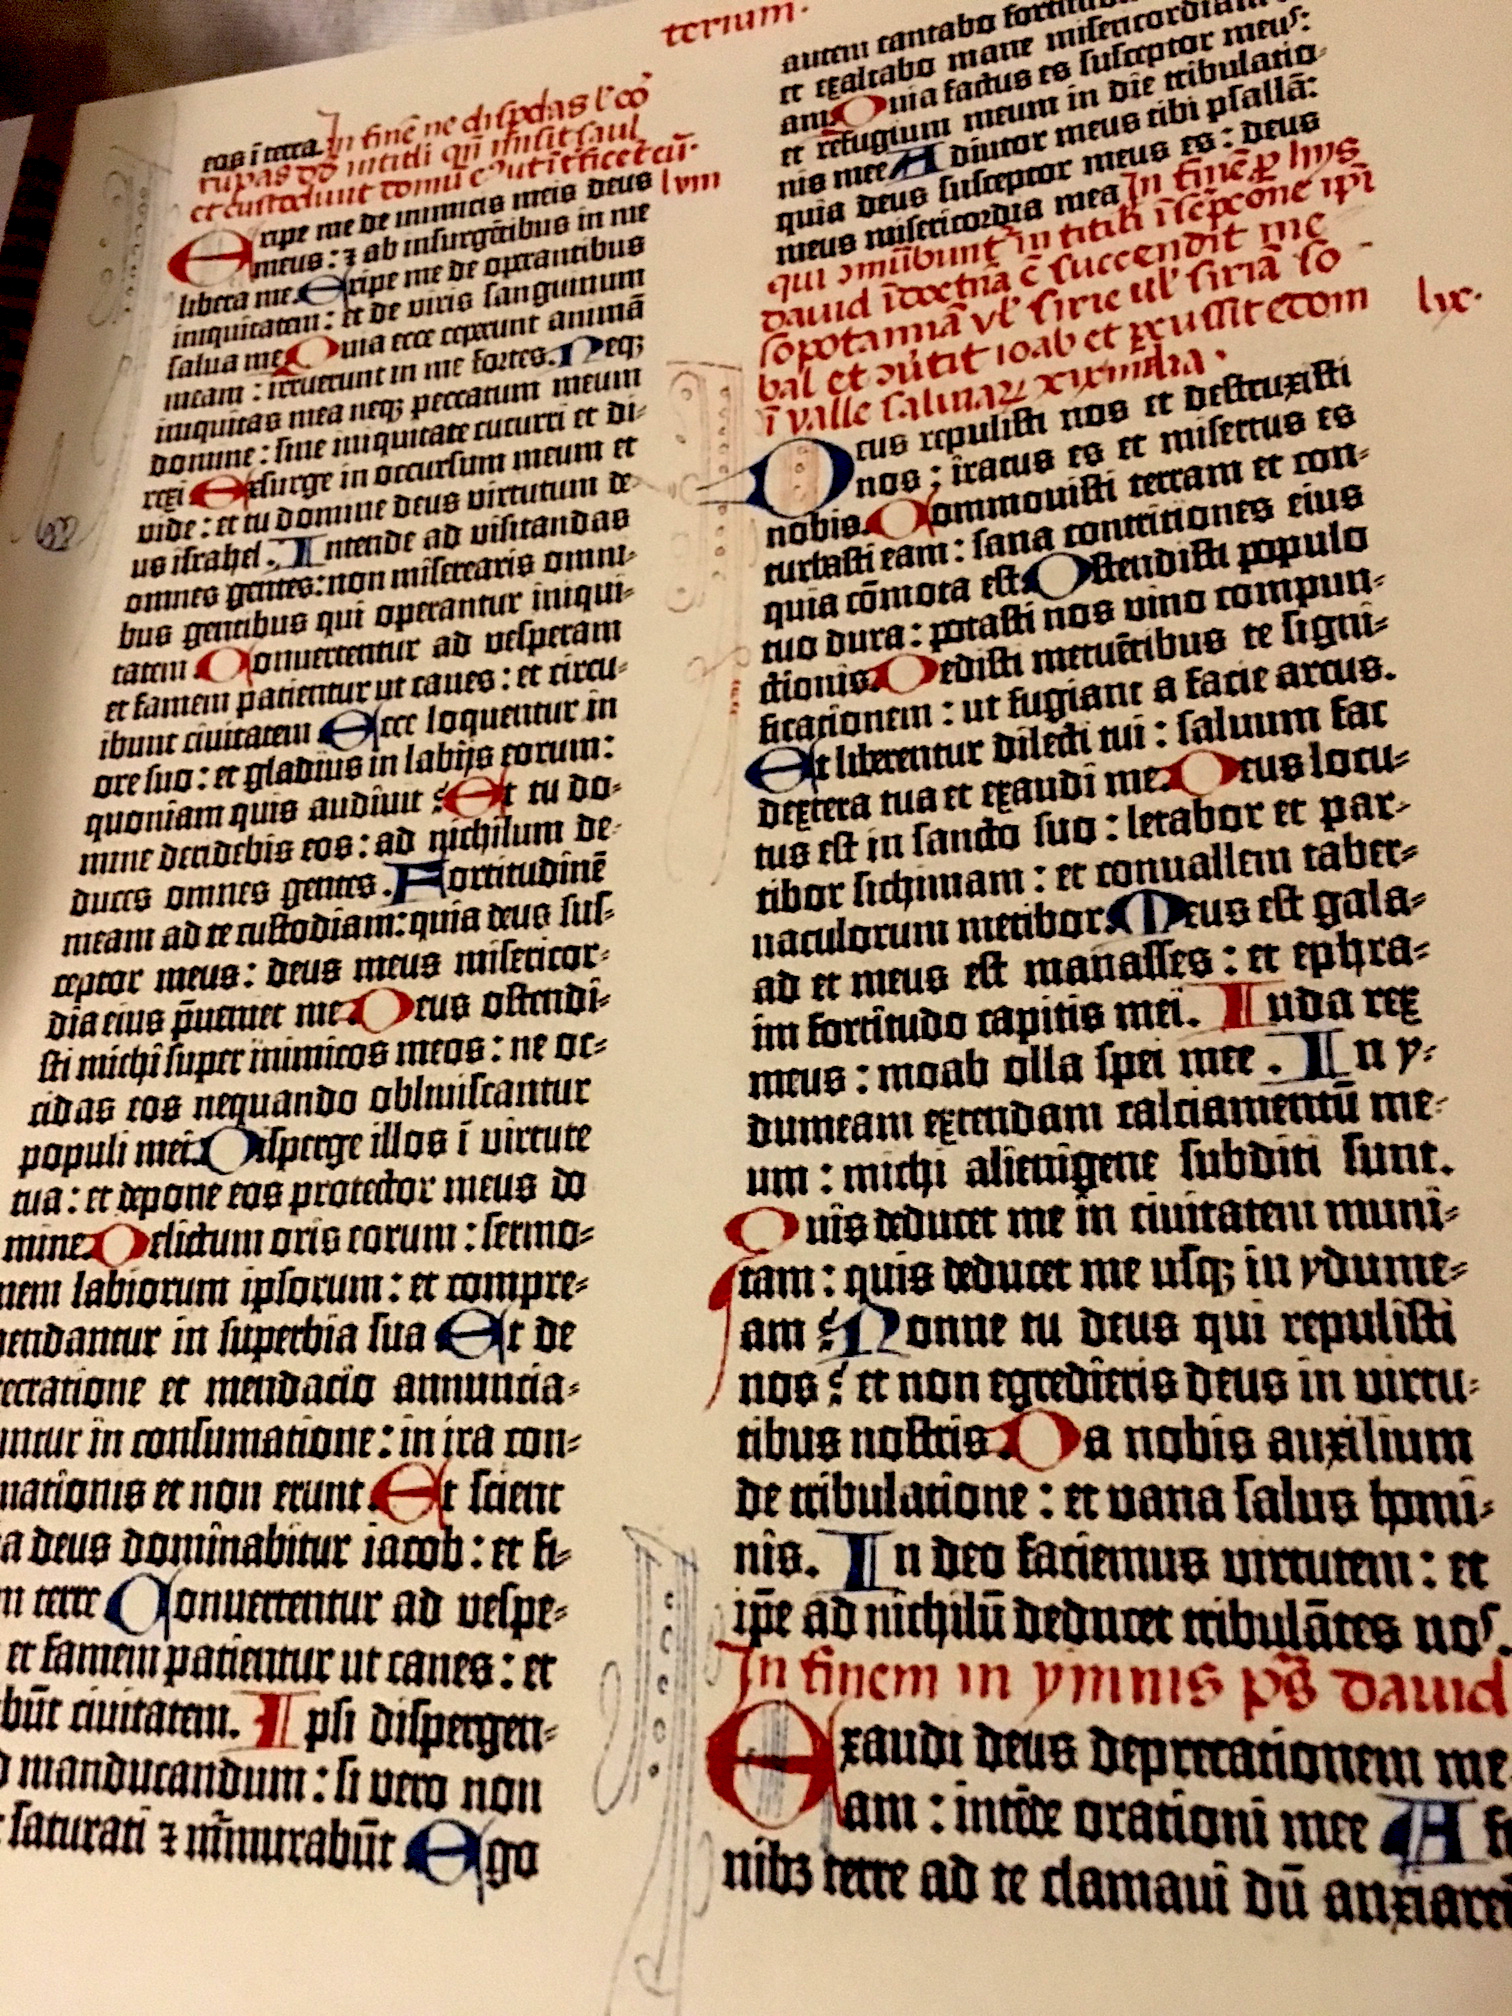 terium.
eos ī terra. In finē ne disp̄das
et custodiunt domū
lvııı
Eripe me de inimicis meis deus
meus: ⁊ ab insurgētibus in me
libera me. Eripe me de operantibus
iniquitatem: et de viris sanguinum
salua me. Quia ecce ceperunt animā
meam: irruerunt in me fortes. Neqʒ
iniquitas mea neqʒ peccatum meum
domine: sine iniquitate cucurri et di⸗
rexi. Exsurge in occursum meum et
vide: et tu domine deus virtutum de⸗
us israhel. Intende ad visitandas
omnes gentes: non miserearis omni⸗
bus gentibus qui operantur iniqui⸗
tatem. Conuertentur ad vesperam
et famem patientur ut canes: et circu⸗
ibunt ciuitatem. Ecce loquentur in
ore suo: et gladius in labijs eorum:
quoniam quis audiuit? Et tu do⸗
mine deridebis eos: ad nichilum de⸗
duces omnes gentes. Fortitudinē
meam ad te custodiam: quia deus sus⸗
ceptor meus: deus meus misericor⸗
dia eius p̄ueniet me. Deus ostendi⸗
sti michi super inimicos meos: ne oc⸗
cidas eos nequando obliuiscantur
populi mei. Disperge illos ī virtute
tua: et depone eos protector meus do
mine. Delictum oris eorum: sermo⸗
nem labiorum ipsorum: et compre⸗
hendantur in superbia sua. Et de
execratione et mendacio annuncia⸗
untur in consumatione: in ira con⸗
mationis et non erunt. Et scient
a deus dominabitur iacob: et fi⸗
m terre. Conuertentur ad vespe⸗
et famem patientur ut canes: et
būt ciuitatem. Ipsi dispergen⸗
d manducandum: si vero non
saturati ⁊ murmurabūt. Ego
autem cantabo
et exaltabo mane misericordiam
am. Quia factus es susceptor meus:
et refugium meum in die tribulatio⸗
nis mee. Adiutor meus tibi psallā:
quia deus susceptor meus es: deus
meus misericordia mea. In finē p̱ hiis
qui ↄmūbunt᷑ in tituli īsc̄pcōne ip̄i
dauid ī doctnā c̄ succendit me
sopotamiā vl' sirie ul' siriā so⸗
bal et ↄūtit ioab et p̱cussit edom
ī valle salinaꝝ xıı milia.
lıx.
Deus repulisti nos et destruxisti
nos: iratus es et misertus es
nobis. Commouisti terram et con⸗
turbasti eam: sana contritiones eius
quia cōmota est. Ostendisti populo
tuo dura: potasti nos vino compun⸗
ctionis. Dedisti metuētibus te signi⸗
ficationem: ut fugiant a facie arcus.
Et liberentur dilecti tui: saluum fac
dextera tua et exaudi me. Deus locu⸗
tus est in sancto suo: letabor et par⸗
tibor sichimam: et conuallem taber⸗
naculorum metibor. Meus est gala⸗
ad et meus est manasses: et ephra⸗
im fortitudo capitis mei. Iuda rex
meus: moab olla spei mee. In y⸗
dumeam extendam calciamentū me⸗
um: michi alienigene subditi sunt.
Quis deducet me in ciuitatem muni⸗
tam: quis deducet me usqʒ in ydume⸗
am? Nonne tu deus qui repulisti
nos? et non egredieris deus in virtu⸗
tibus nostris. Da nobis auxilium
de tribulatione: et vana salus homi⸗
nis. In deo faciemus virtutem: et
ip̄e ad nichilū deducet tribulātes nos.
In finem in ymnis ps̄ dauid
Exaudi deus deprecationem me
am: intēde orationi mee. A fi
nibʒ terre ad te clamaui dū anxiaret